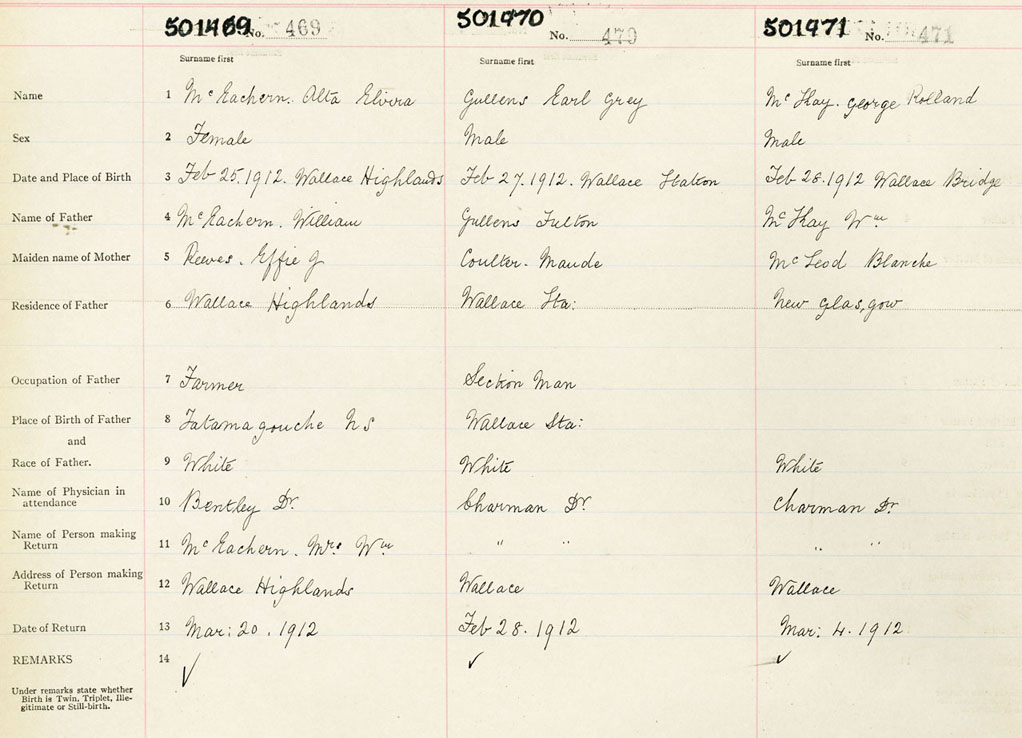 501469 No. 469 501470 No. 470 501471 No. 471
Surname first Surname first Surname first
Name 1 McEachern. Alta Elvira Gullens Earl Grey McKay. George Rolland
Sex 2 Female Male Male
Date and Place of Birth 3 Feb 25.1912. Wallace Highlands Feb 27.1912. Wallace Station Feb 28.1912 Wallace Bridge
Name of Father 4 McEachern. William Gullens Fulton McKay Wm
Maiden name of Mother 5 Reeves. Effie J Coulter. Maude McLeod Blanche
Residence of Father 6 Wallace Highlands Wallace Sta: New Glasgow
Occupation of Father 7 Farmer Section Man
Place of Birth of Father 8 Tatamagouche N S Wallace Sta:
and
Race of Father. 9 White White White
Name of Physician in attendance 10 Bentley Dr. Charman Dr. Charman Dr.
Name of Person making Return 11 McEachern. Mrs Wm " " " "
Address of Person making Return 12 Wallace Highlands Wallace Wallace
Date of Return 13 Mar: 20. 1912 Feb 28. 1912 Mar: 4. 1912
REMARKS 14 ✓ ✓ ✓
Under remarks state whether
Birth is Twin, Triplet, Ille-
gitimate or Still-birth.